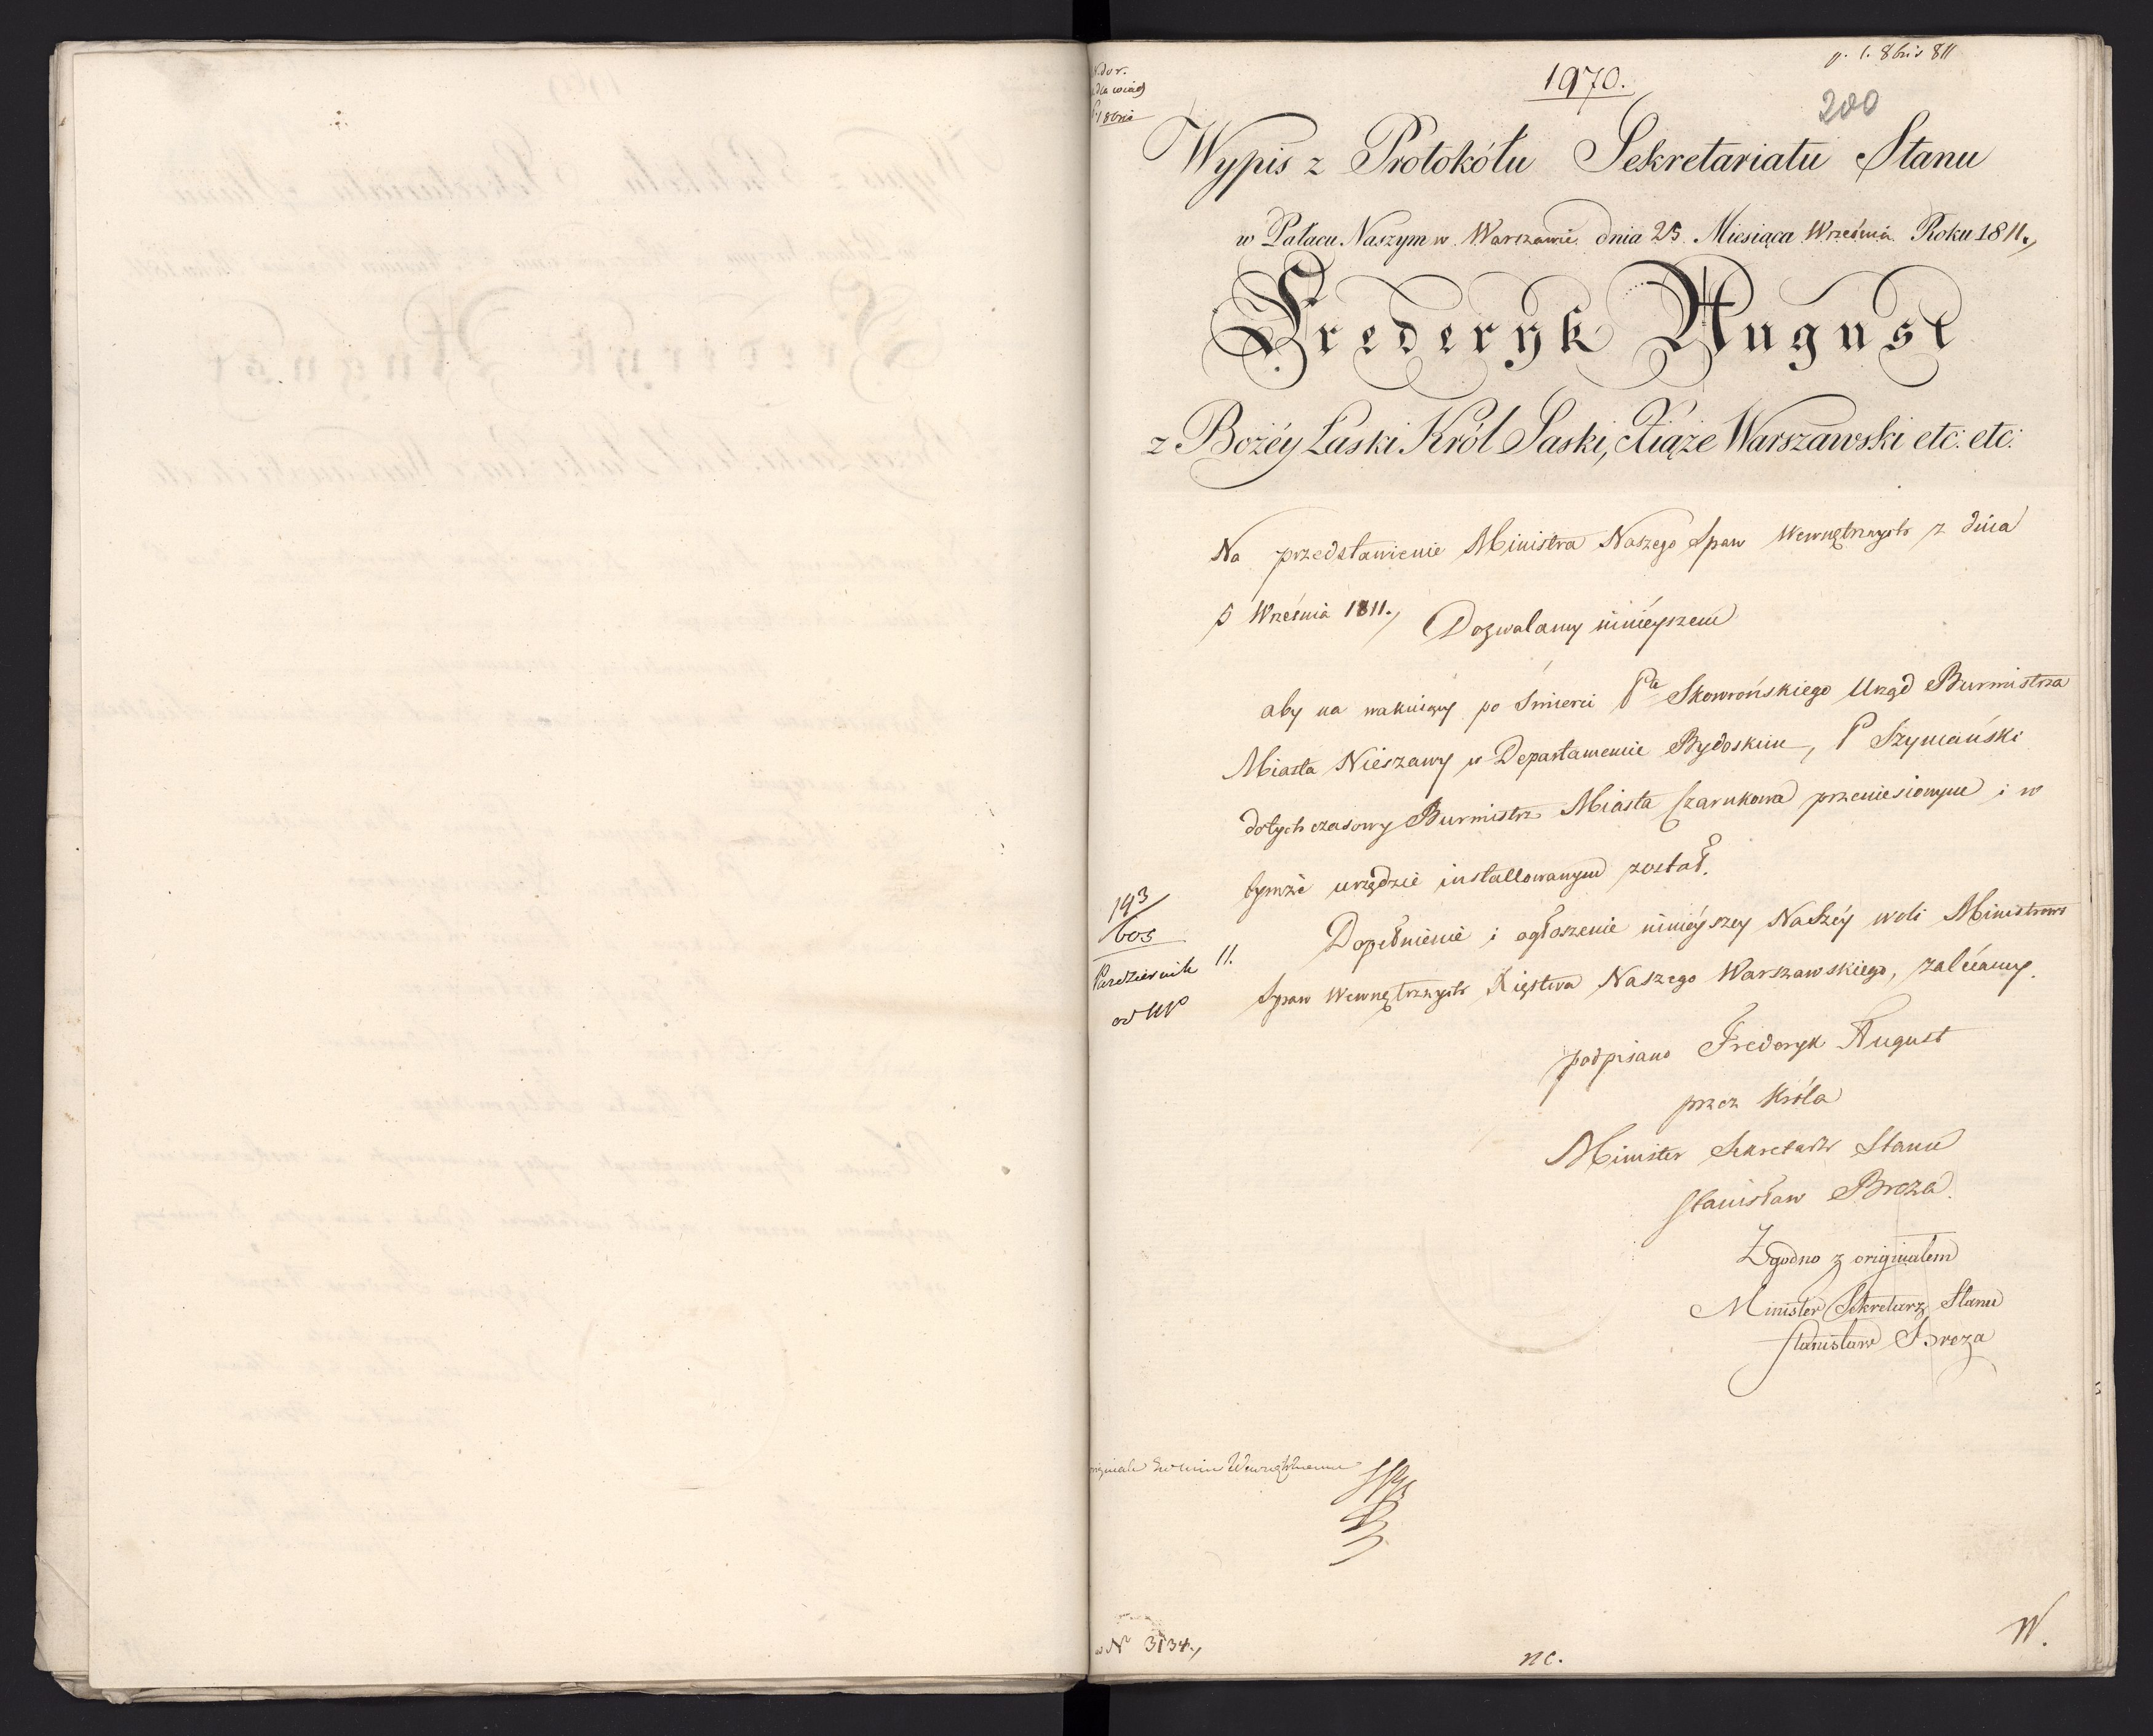 p. 1. 8bris 811
1970.
200
dla wiad
1 8bris
Wypis z Protokółu Sekretariatu Stanu
w Pałacu Naszym w Warszawie dnia 25. Miesiąca Września Roku 1811.,
Frederyk August
z Bożéy Łaski Król Saski, Xiąże Warszawski etc: etc:
Na przedstawienie Ministra Naszego Spraw Wewnętrznych z dnia
5 Września 1811., Dozwalamy ninieyszem
aby na wakuiący po śmierci Pa Skowrońskiego Urząd Burmistrza
Miasta Nieszawy w Departamencie Bydoskim, P Szymański
dotychczasowy Burmistrz Miasta Czarnkowa przeniesionym i w
tymże urzędzie installowanym został.
Dopełnienie i ogłoszenie ninieyszey Naszéy woli Ministrowi
Spraw Wewnętrznych Xięstwa Naszego Warszawskiego, zalecamy.
193
605
Pazdziernik 11.
od
podpisano Frederyk August
przez Króla
Minister Sekretarz Stanu
Stanisław Breza.
Zgodno z originałem
Minister Sekretarz Stanu
Stanisław Breza
w Nr 3134.,
nc.
W.